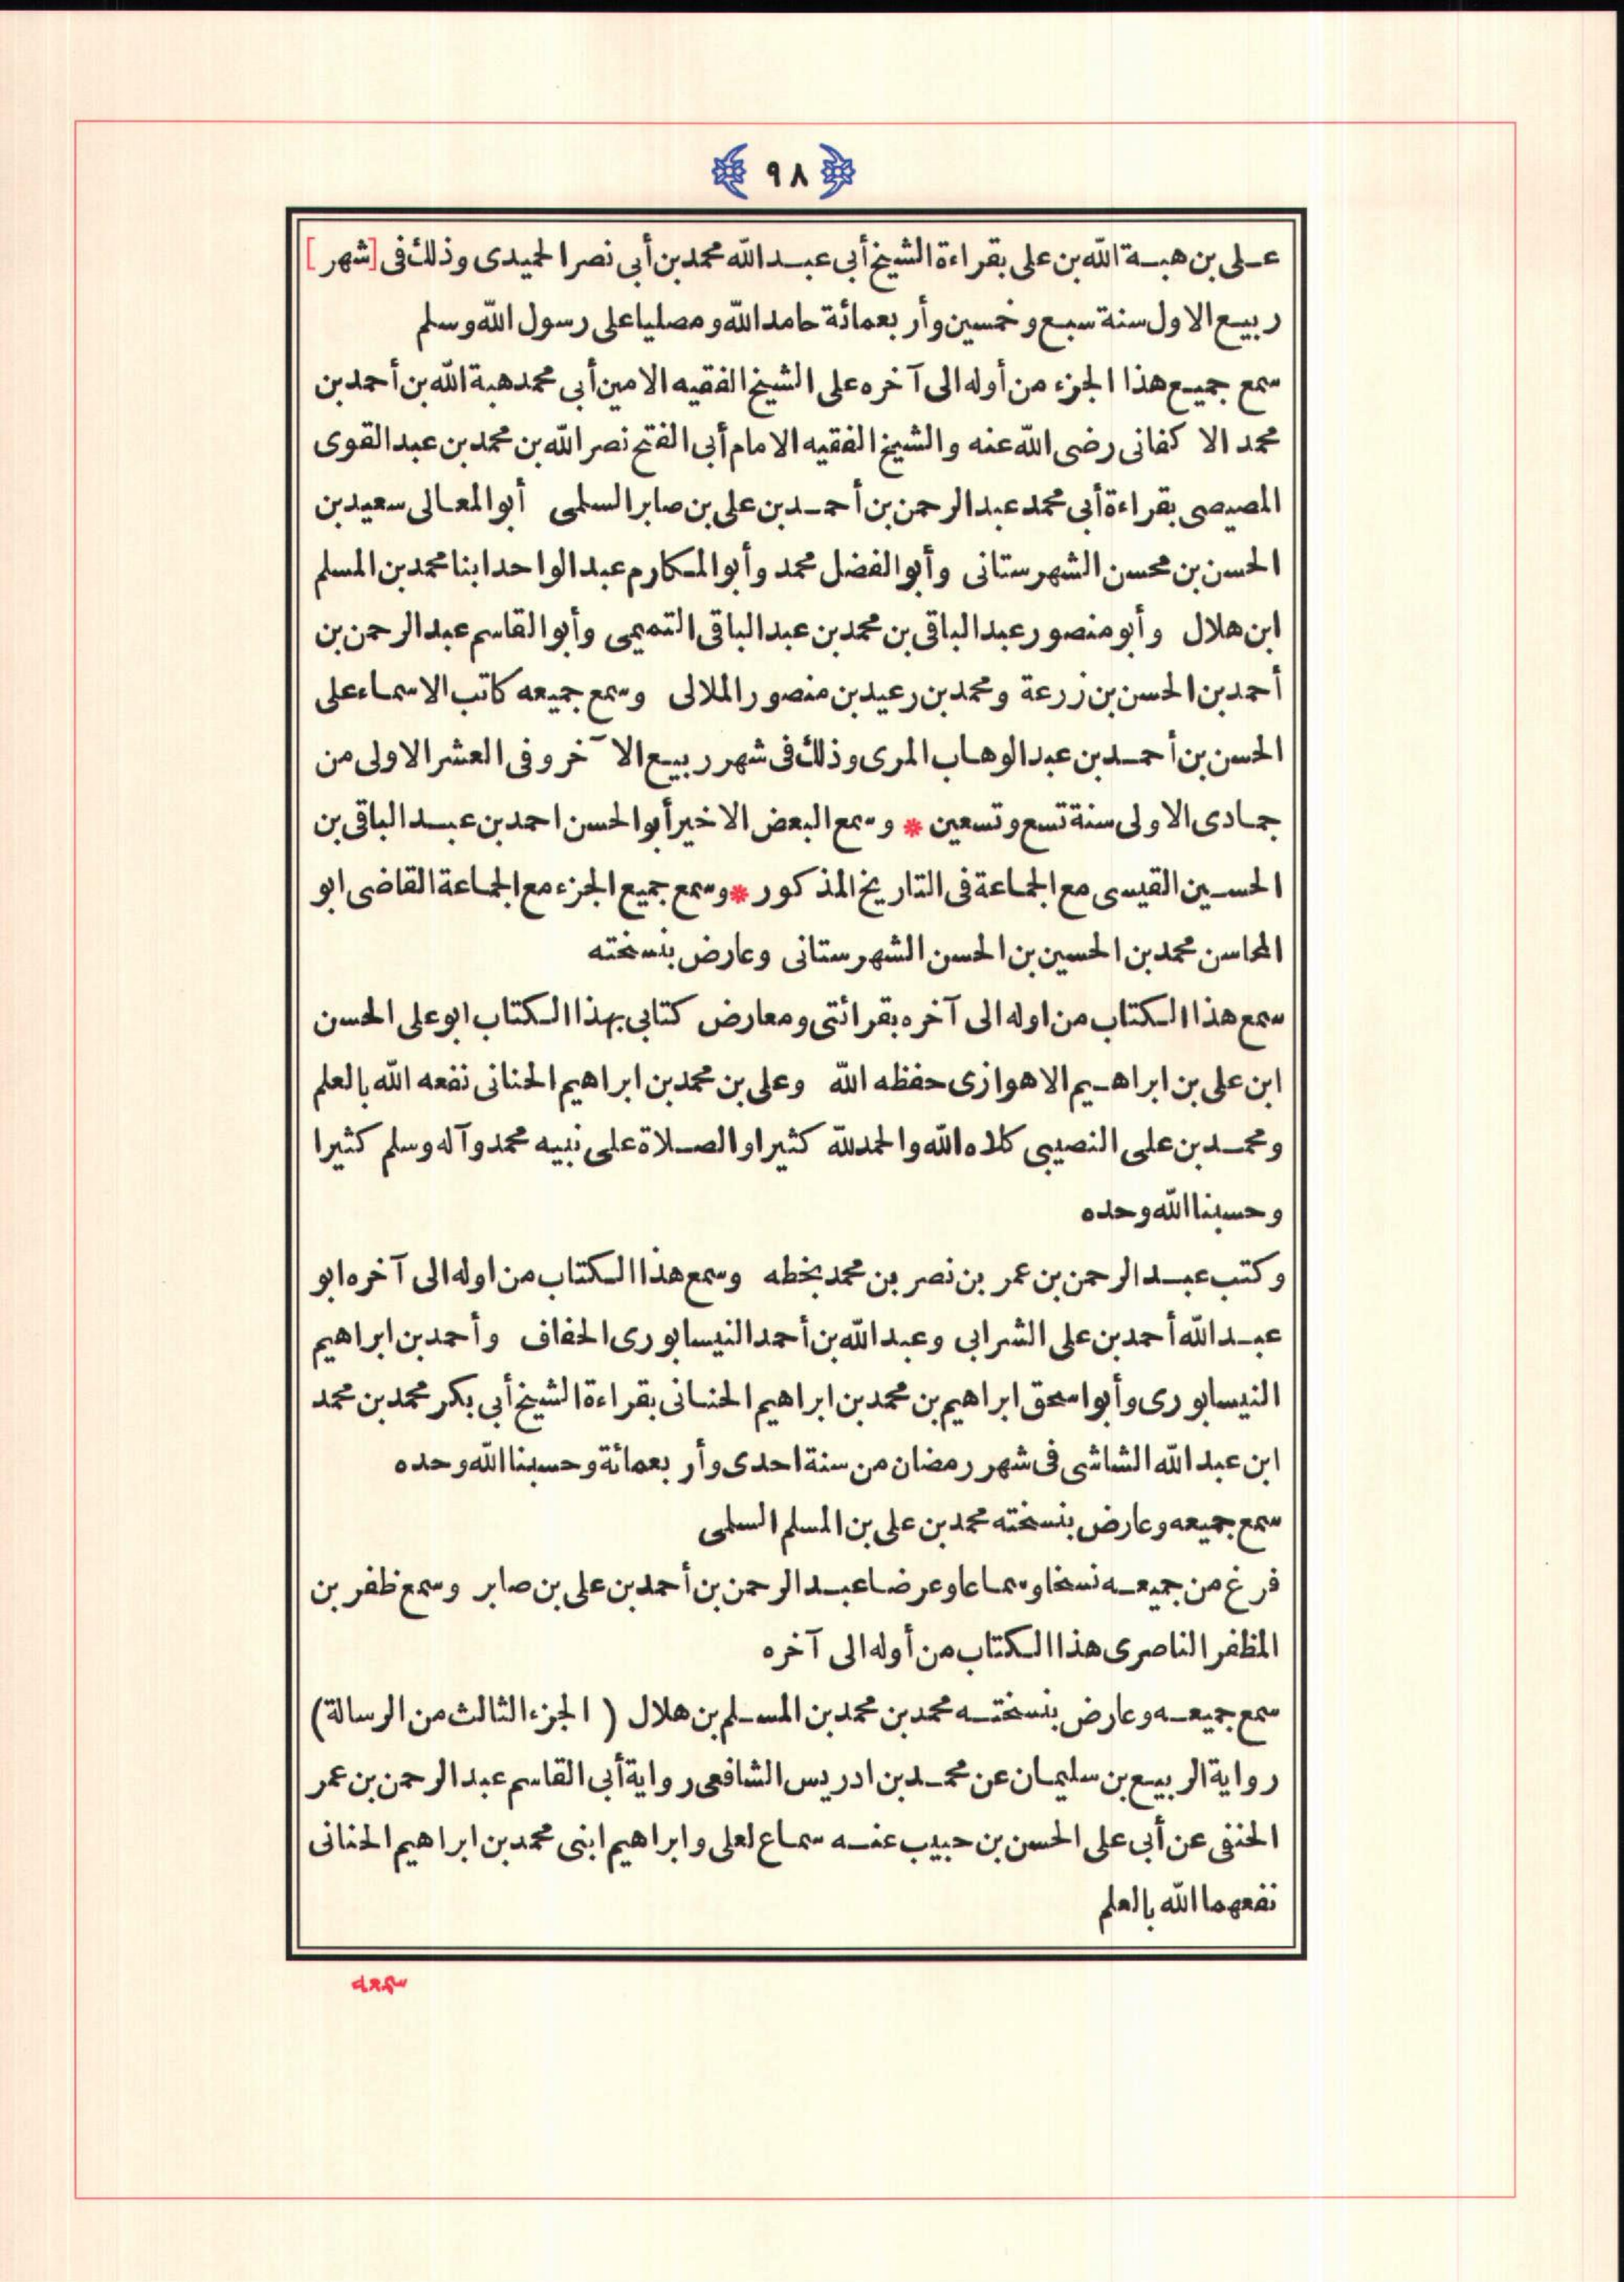 ٩٨
على بن هبة الله بن على بقراءة الشيخ أبى عبد الله محمد بن أبى نصر الحميدى وذلك فى [شهر]
ربيع الاول سنة سبع وخمسين وأربعمائة حامد الله ومصليا على رسول الله وسلم
سمع جميع هذا الجزء من أوله الى آخره على الشيخ الفقيه الامين أبى محمد هبة الله بن أحمد بن
محمد الاكفانى رضى الله عنه والشيخ الفقيه الامام أبى الفتح نصر الله بن محمد بن عبد القوى
المصيصى بقراءة أبى محمد عبد الرحمن بن أحمد بن على بن صابر السلمى أبو المعالى سعيد بن
الحسن بن محسن الشهرستانى وأبو الفضل محمد وأبو المكارم عبد الواحد ابنا محمد بن المسلم
ابن هلال وأبو منصور عبد الباقى بن محمد بن عبد الباقى التميمى وأبو القاسم عبد الرحمن بن
أحمد بن الحسن بن زرعة ومحمد بن رعيد بن منصور الملالى وسمع جميعه كاتب الاسماء على
الحسن بن أحمد بن عبد الوهاب المرى وذلك فى شهر ربيع الآخر وفى العشر الاولى من
جمادى الاولى سنة تسع وتسعين * وسمع البعض الاخير أبو الحسن احمد بن عبد الباقى بن
الحسين القيسى مع الجماعة فى التاريخ المذكور * وسمع جميع الجزء مع الجماعة القاضى ابو
المحاسن محمد بن الحسين بن الحسن الشهرستانى وعارض بنسخته
سمع هذا الكتاب من اوله الى آخره بقرائتى ومعارض كتابى بهذا الكتاب ابو على الحسن
ابن على بن ابراهيم الاهوازى حفظه الله وعلى بن محمد بن ابراهيم الحنانى نفعه الله بالعلم
ومحمد بن على النصيبى كلاه الله والحمد لله كثيرا والصلاة على نبيه محمد وآله وسلم كثيرا
وحسبنا الله وحده
وكتب عبد الرحمن بن عمر بن نصر بن محمد بخطه وسمع هذا الكتاب من اوله الى آخره ابو
عبد الله أحمد بن على الشرابى وعبد الله بن أحمد النيسابورى الخفاف وأحمد بن ابراهيم
النيسابورى وأبو اسحق ابراهيم بن محمد بن ابراهيم الحنانى بقراءة الشيخ أبى بكر محمد بن محمد
ابن عبد الله الشاشى فى شهر رمضان من سنة احدى وأربعمائة وحسبنا الله وحده
سمع جميعه وعارض بنسخته محمد بن على بن المسلم السلمى
فرغ من جميعه نسخا وسماعا وعرضا عبد الرحمن بن أحمد بن على بن صابر وسمع ظفر بن
المظفر الناصرى هذا الكتاب من أوله الى آخره
سمع جميعه وعارض بنسخته محمد بن محمد بن المسلم بن هلال ( الجزء الثالث من الرسالة)
رواية الربيع بن سليمان عن محمد بن ادريس الشافعى رواية أبى القاسم عبد الرحمن بن عمر
الحنفى عن أبى على الحسن بن حبيب عنه سماع لعلى وابراهيم ابنى محمد بن ابراهيم الحنانى
نفعهما الله بالعلم
سمعه